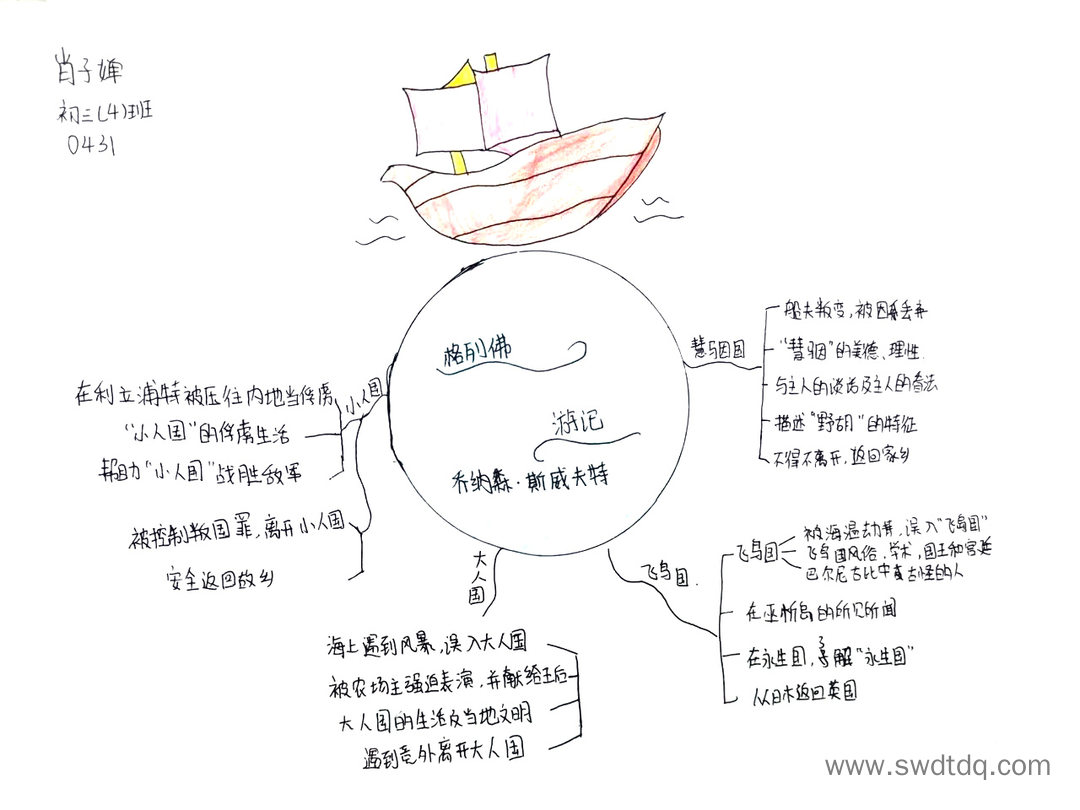 肖子婵
初三(4)班
0431
格列佛
游记
乔纳森·斯威夫特
小人国
在利立浦特被压往内地当俘虏
"小人国"的俘虏生活
帮助"小人国"战胜敌军
被控制叛国罪,离开小人国
安全返回故乡
大人国
海上遇到风暴,误入大人国
被农场主强迫表演,并献给王后
大人国的生活及当地文明
遇到意外离开大人国
飞鸟国.
飞鸟国
被海盗劫舟,误入"飞鸟国"
飞鸟国风俗,学术,国王和宫廷
巴尔尼古比中复古怪的人
在巫术岛的所见所闻
在永生国,了解"永生国"
从日本返回英国
慧骃国
船夫叛变,被丢弃
"慧骃"的美德、理性.
与主人的谈话及主人的看法
描述"野胡"的特征
不得不离开,返回家乡
www.swdtdq.com